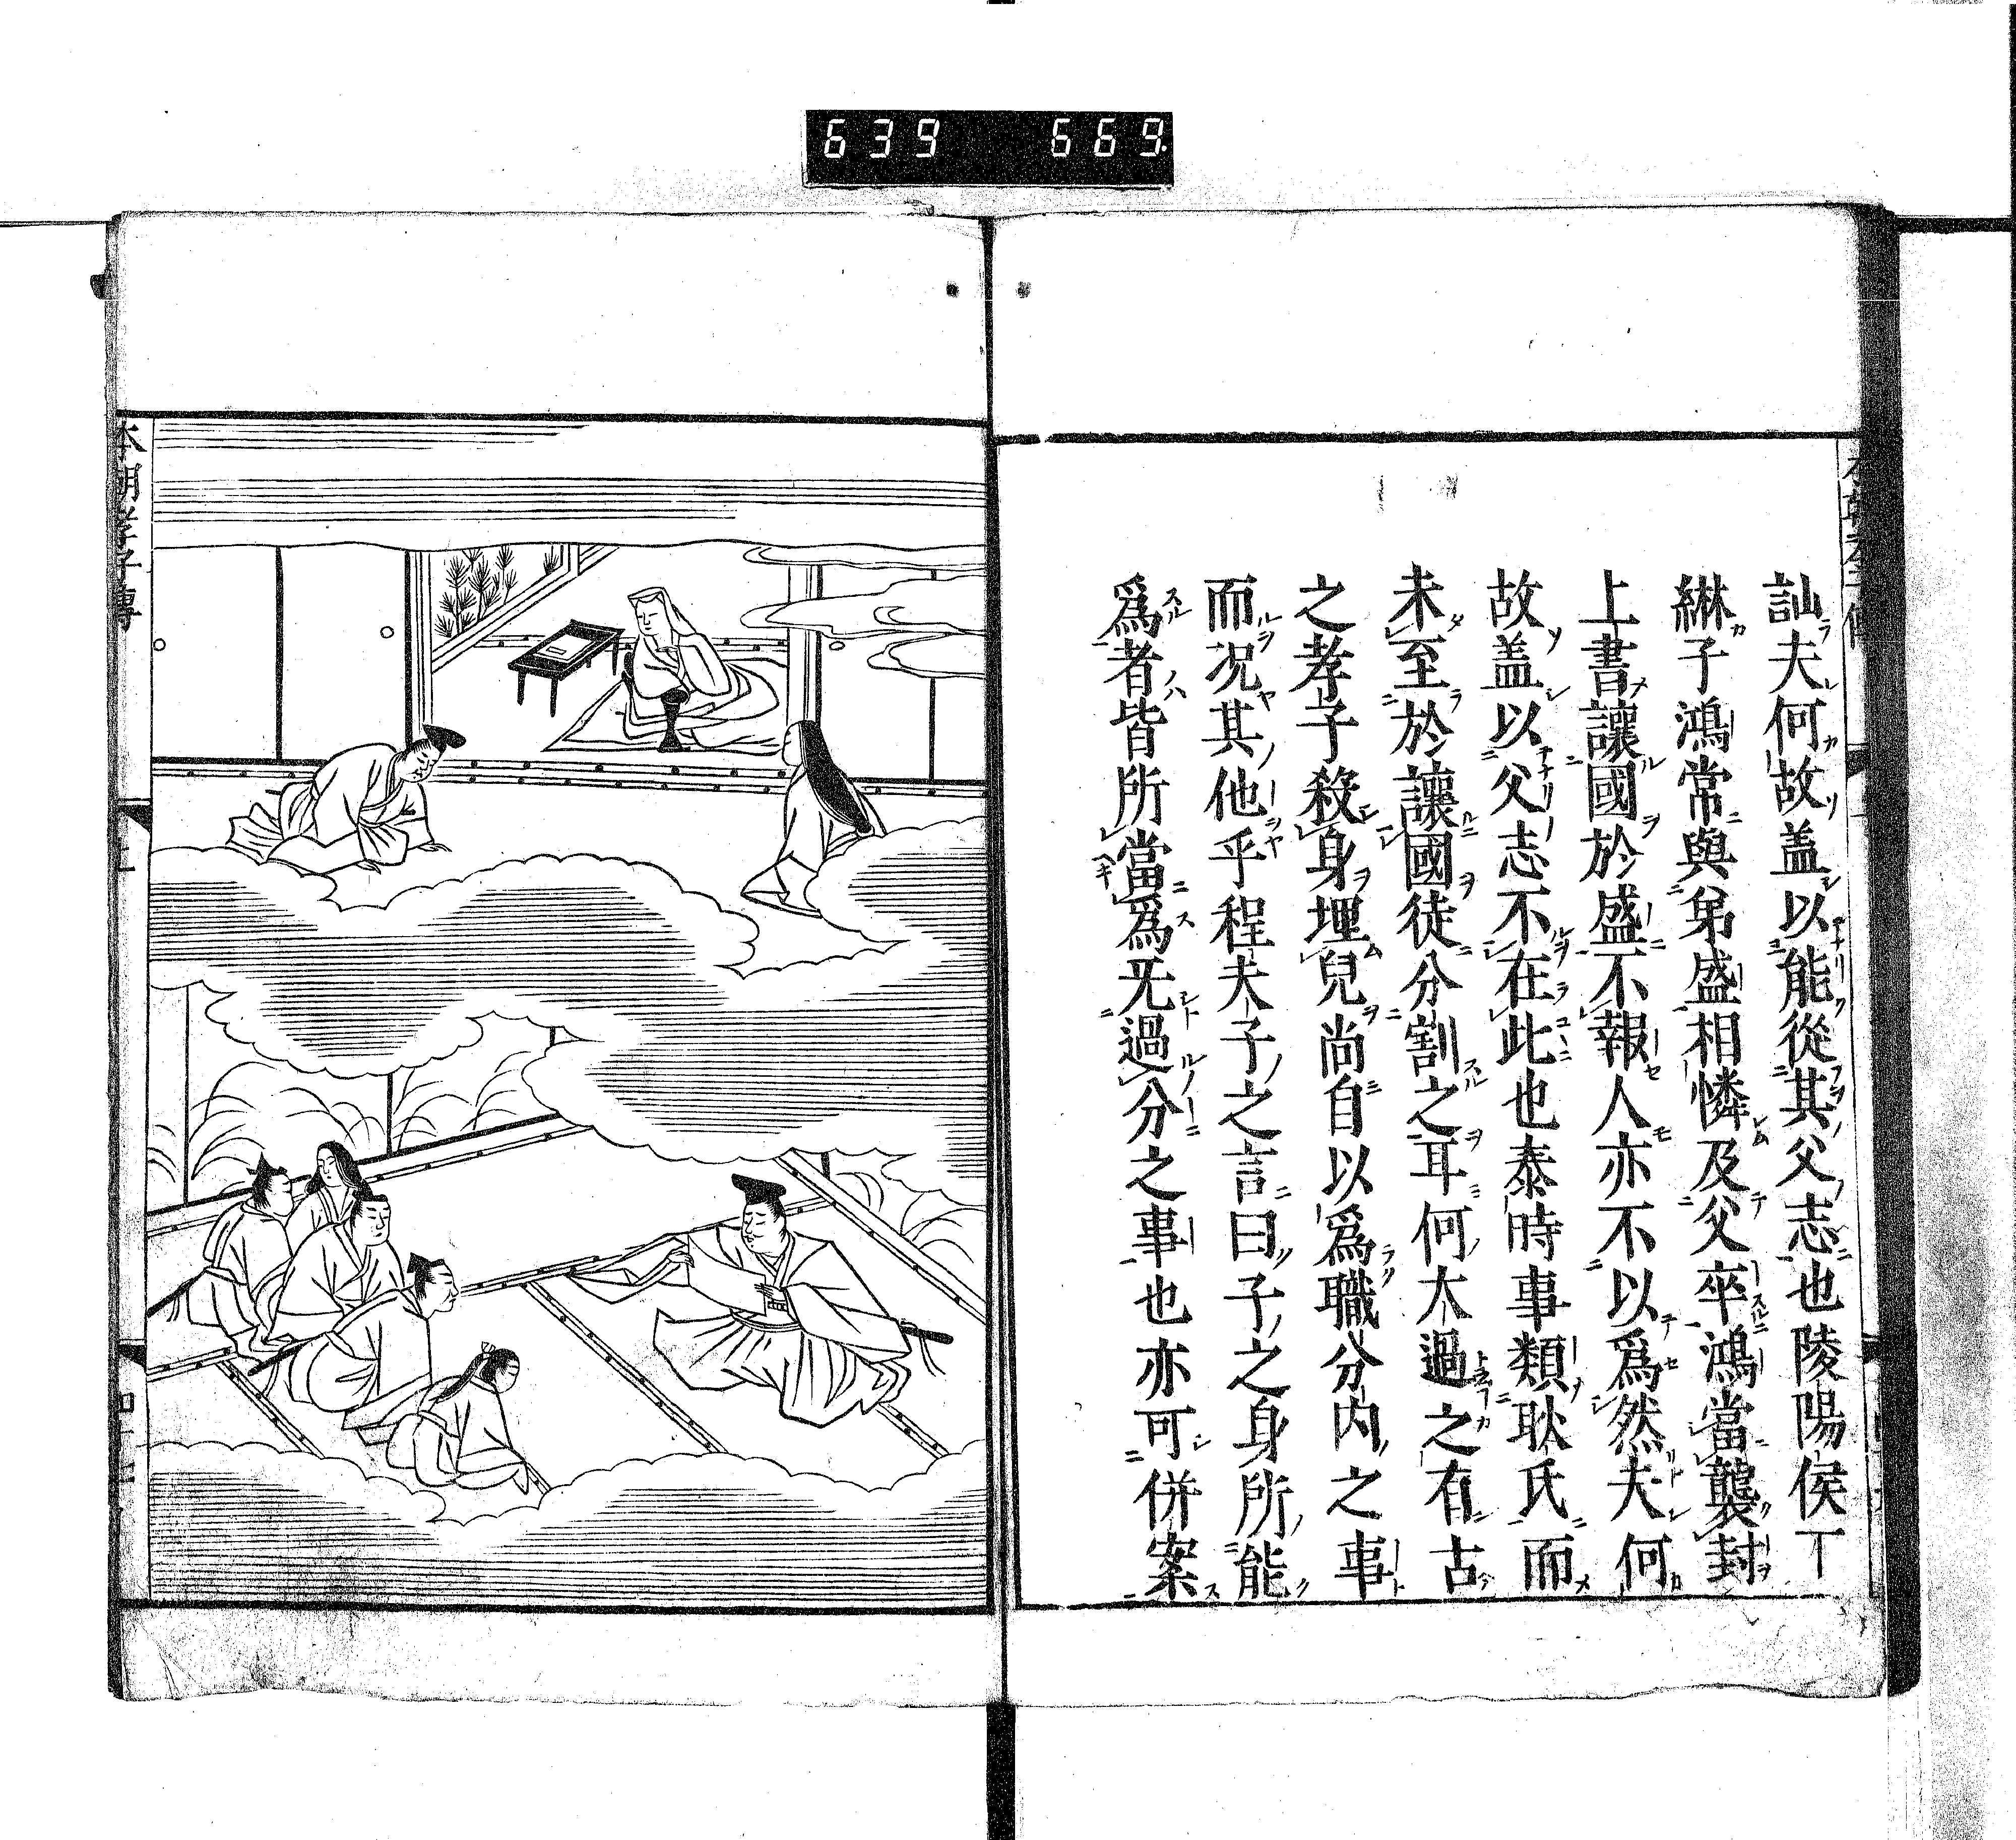 639 669
訕夫何故盖以能從其父志也陵陽侯丁
綝子鴻常與弟盛相憐及父卒鴻當襲封
上書讓國於盛不報人亦不以爲然夫何
故盖以父志不在此也泰時事類耿氏而
未至於讓國徒分割之耳何太過之有古
之孝子殺身埋兒尚自以爲職分内之事
而况其他乎程夫子之言曰子之身所能
爲者皆所當爲无過分之事也亦可併案
本朝孝子傳